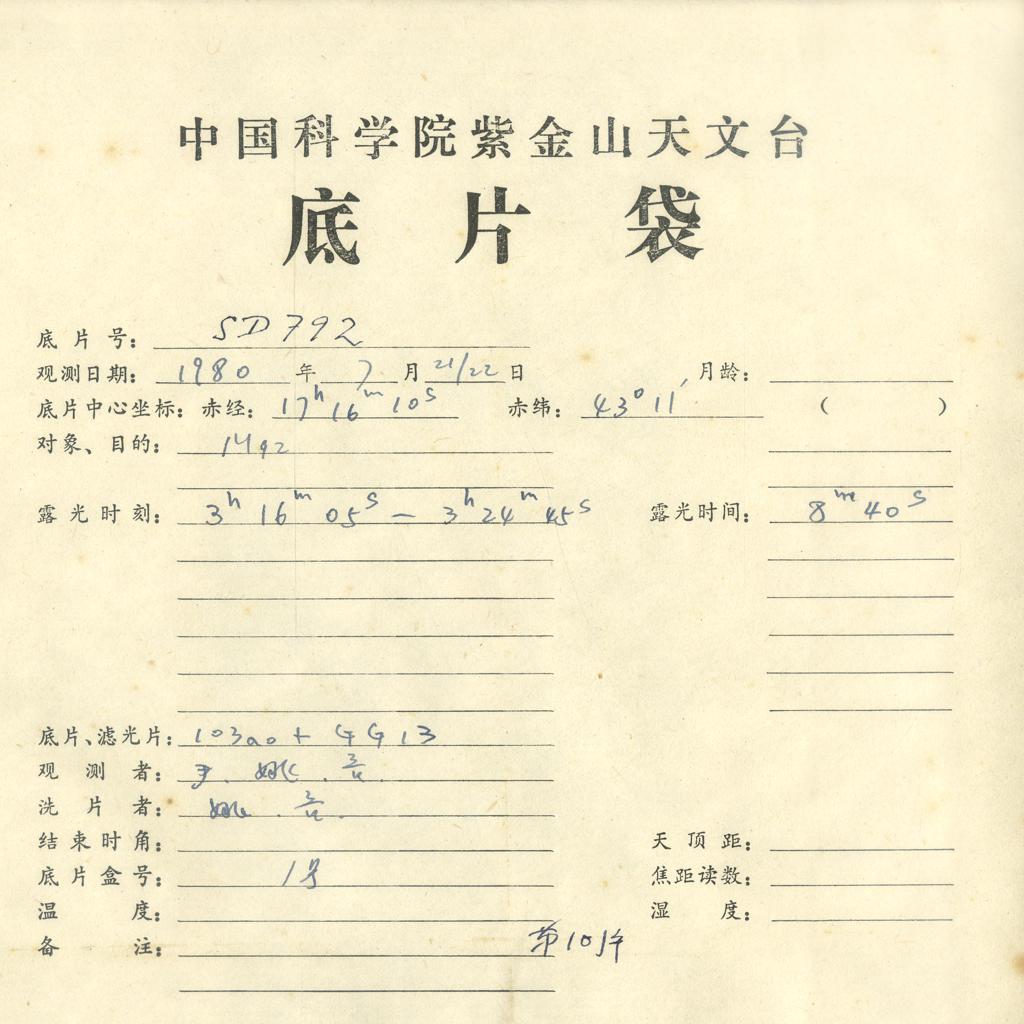 中国科学院紫金山天文台
底片袋
底片号: SD792
观测日期: 1980年 7月 21/22日 月龄:
底片中心坐标: 赤经: 17h 16m 10s 赤纬: 43° 11′ ( )
对象、目的: 1492
露光时刻: 3h 16m 05s — 3h 24m 45s 露光时间: 8m 40s
底片、滤光片: 103a0 + GG13
观测者:
洗片者:
结束时角: 天顶距:
底片盒号: 1号 焦距读数:
温度: 湿度:
备注: 第10片